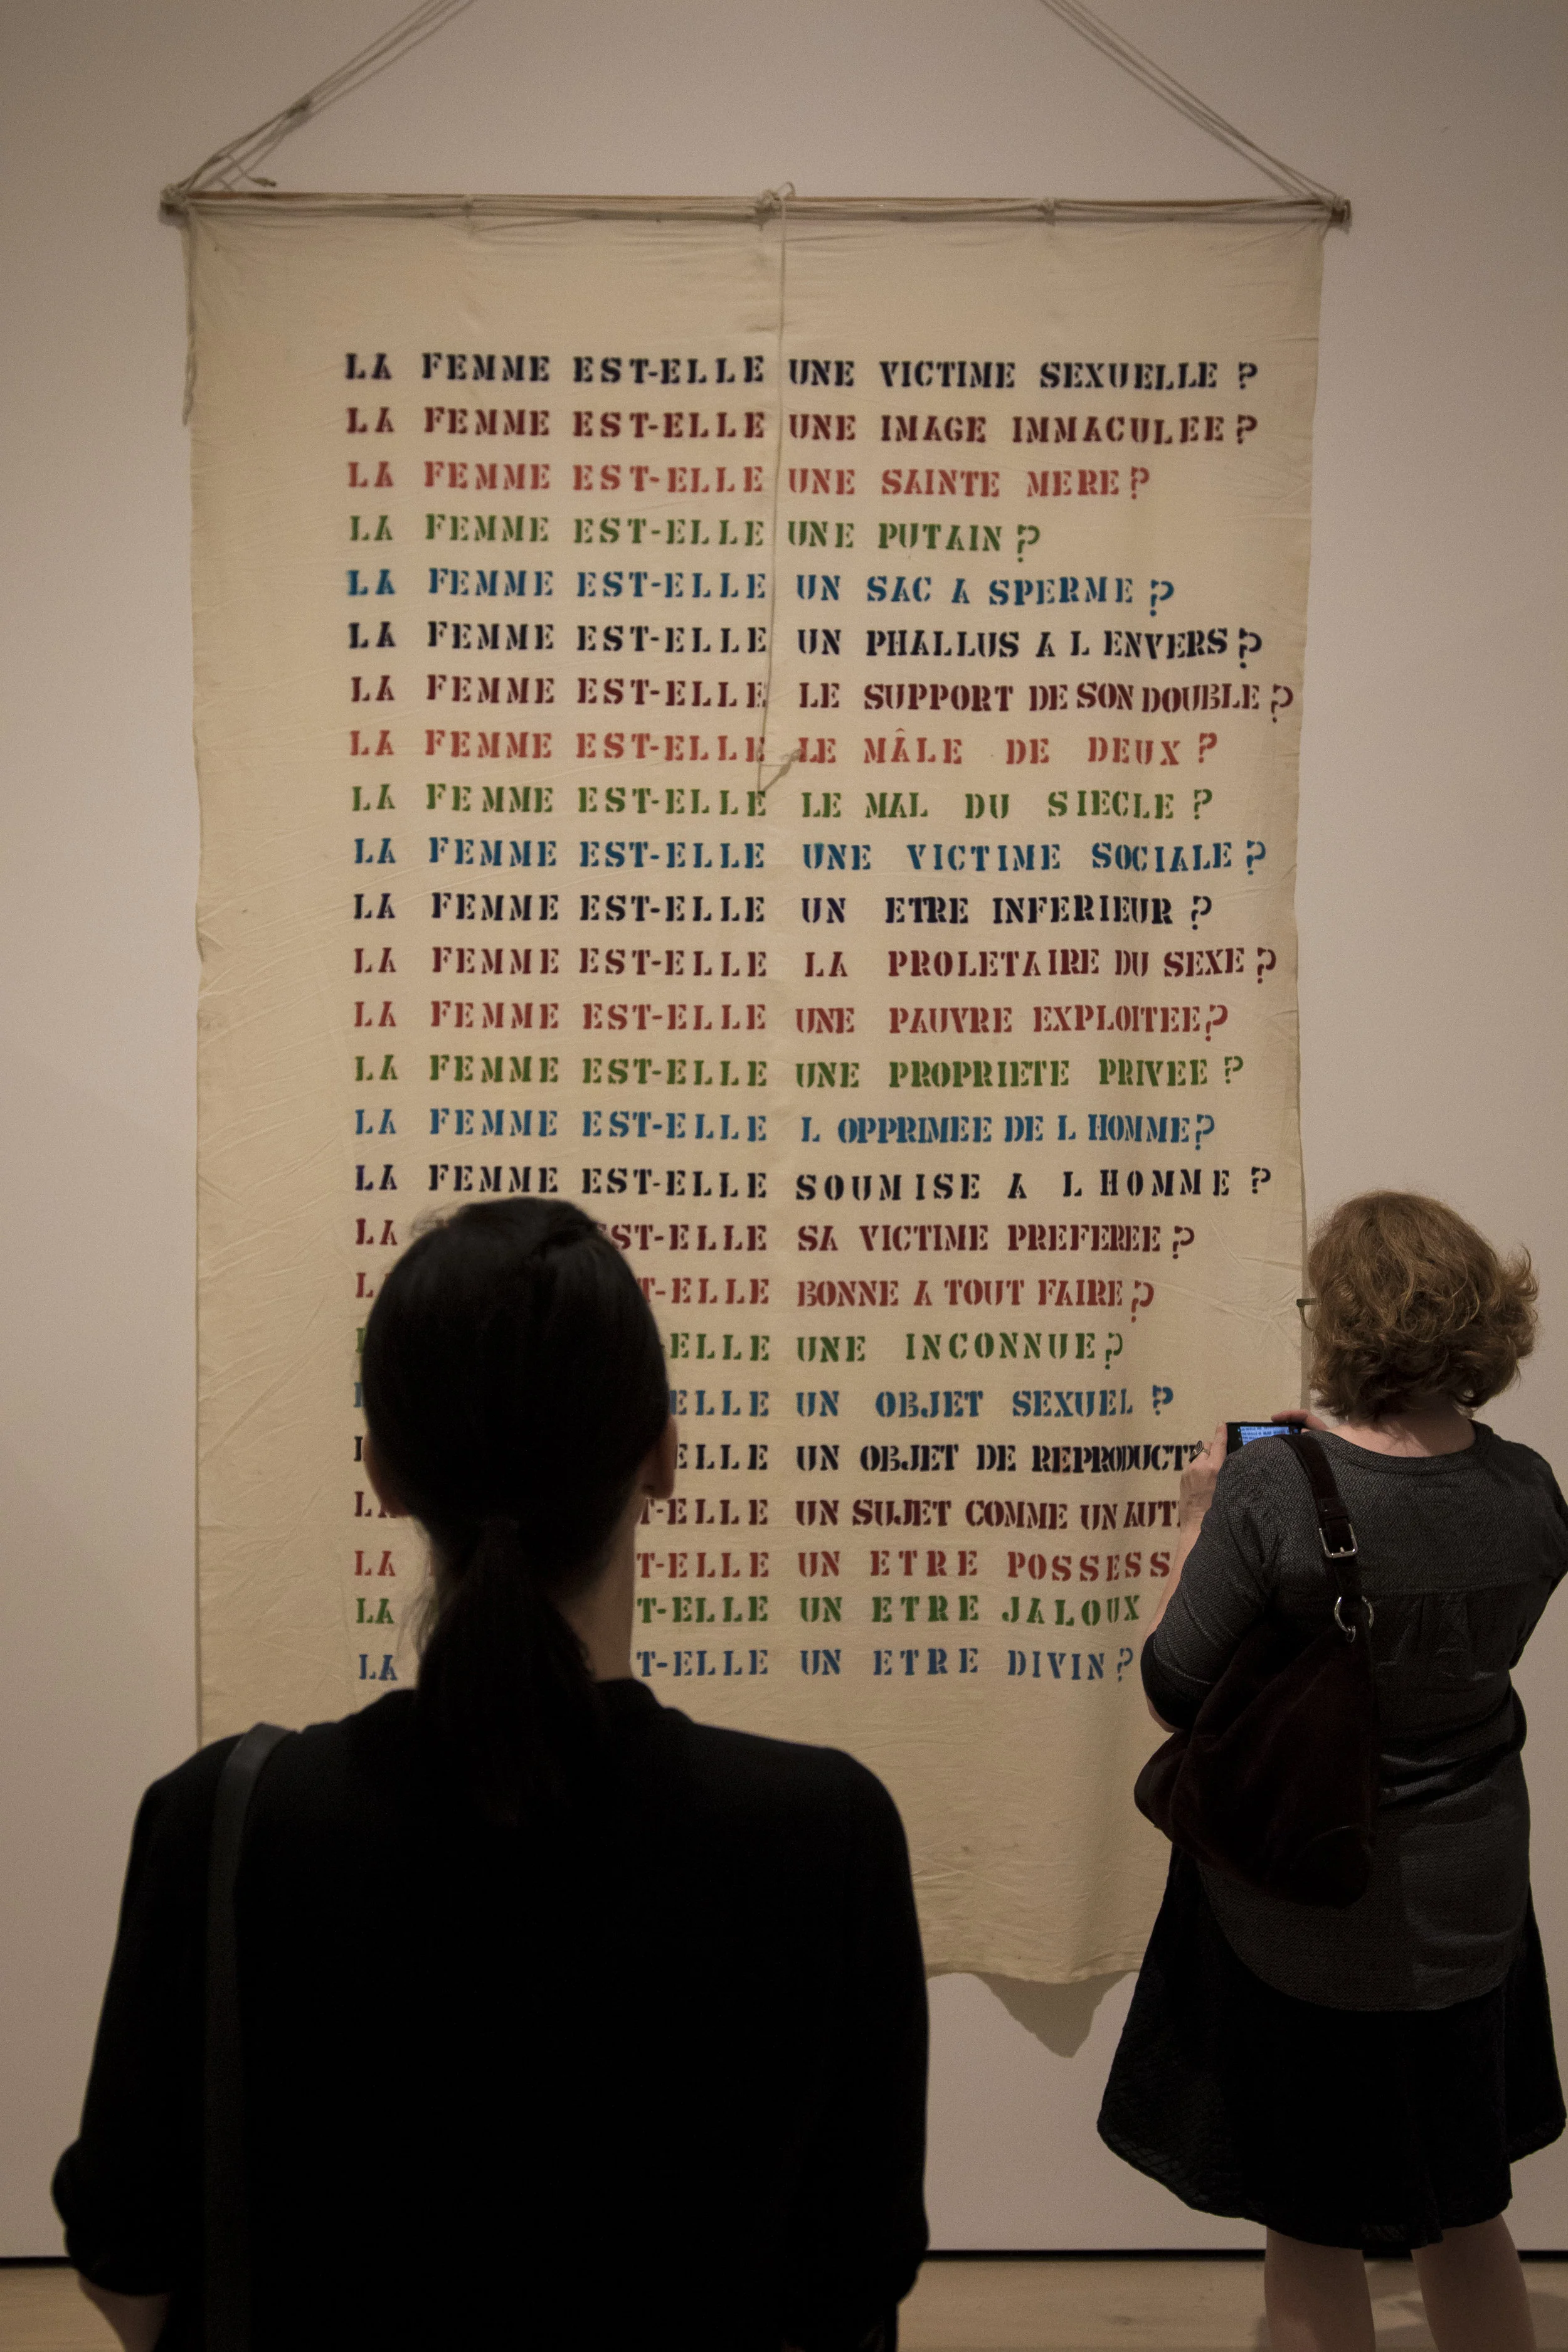 LA FEMME EST-ELLE UNE VICTIME SEXUELLE ?
LA FEMME EST-ELLE UNE IMAGE IMMACULEE ?
LA FEMME EST-ELLE UNE SAINTE MERE ?
LA FEMME EST-ELLE UNE PUTAIN ?
LA FEMME EST-ELLE UN SAC A SPERME ?
LA FEMME EST-ELLE UN PHALLUS A L ENVERS ?
LA FEMME EST-ELLE LE SUPPORT DE SON DOUBLE ?
LA FEMME EST-ELLE LE MÂLE DE DEUX ?
LA FEMME EST-ELLE LE MAL DU SIECLE ?
LA FEMME EST-ELLE UNE VICTIME SOCIALE ?
LA FEMME EST-ELLE UN ETRE INFERIEUR ?
LA FEMME EST-ELLE LA PROLETAIRE DU SEXE ?
LA FEMME EST-ELLE UNE PAUVRE EXPLOITEE ?
LA FEMME EST-ELLE UNE PROPRIETE PRIVEE ?
LA FEMME EST-ELLE L OPPRIMEE DE L HOMME ?
LA FEMME EST-ELLE SOUMISE A L HOMME ?
LA EST-ELLE SA VICTIME PREFEREE ?
T-ELLE BONNE A TOUT FAIRE ?
ELLE UNE INCONNUE ?
ELLE UN OBJET SEXUEL ?
ELLE UN OBJET DE REPRODUCT
LA T-ELLE UN SUJET COMME UN AUT
LA T-ELLE UN ETRE POSSESS
LA T-ELLE UN ETRE JALOUX
LA T-ELLE UN ETRE DIVIN ?